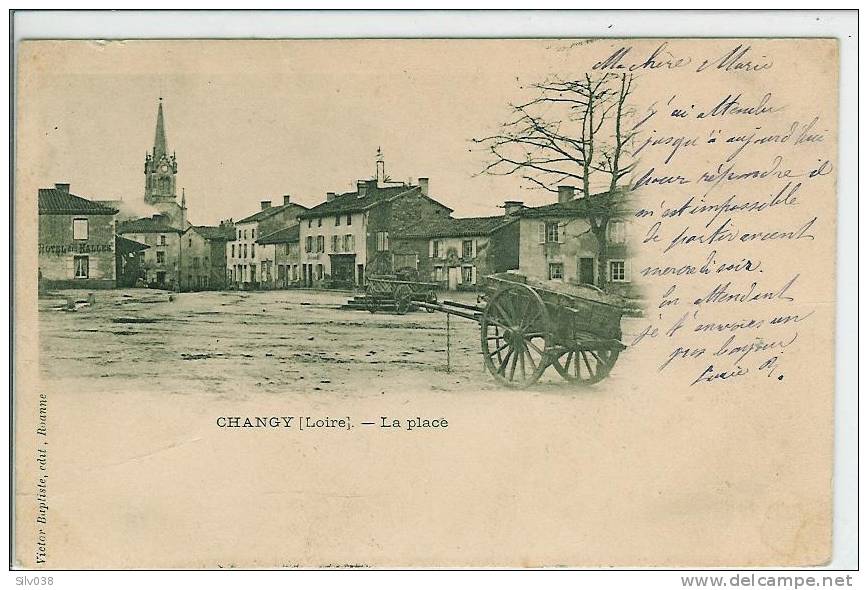 Ma chère Marie
j'ai attendu
jusqu'à aujourd'hui
pour répondre il
m'est impossible
de partir avant
mercredi soir.
En attendant
je t'envoies un
gros bonjour
Lucie R.
HOTEL DES HALLES
CHANGY [Loire]. — La place
Victor Baptiste, edit, Roanne
Slv038
www.delcampe.net